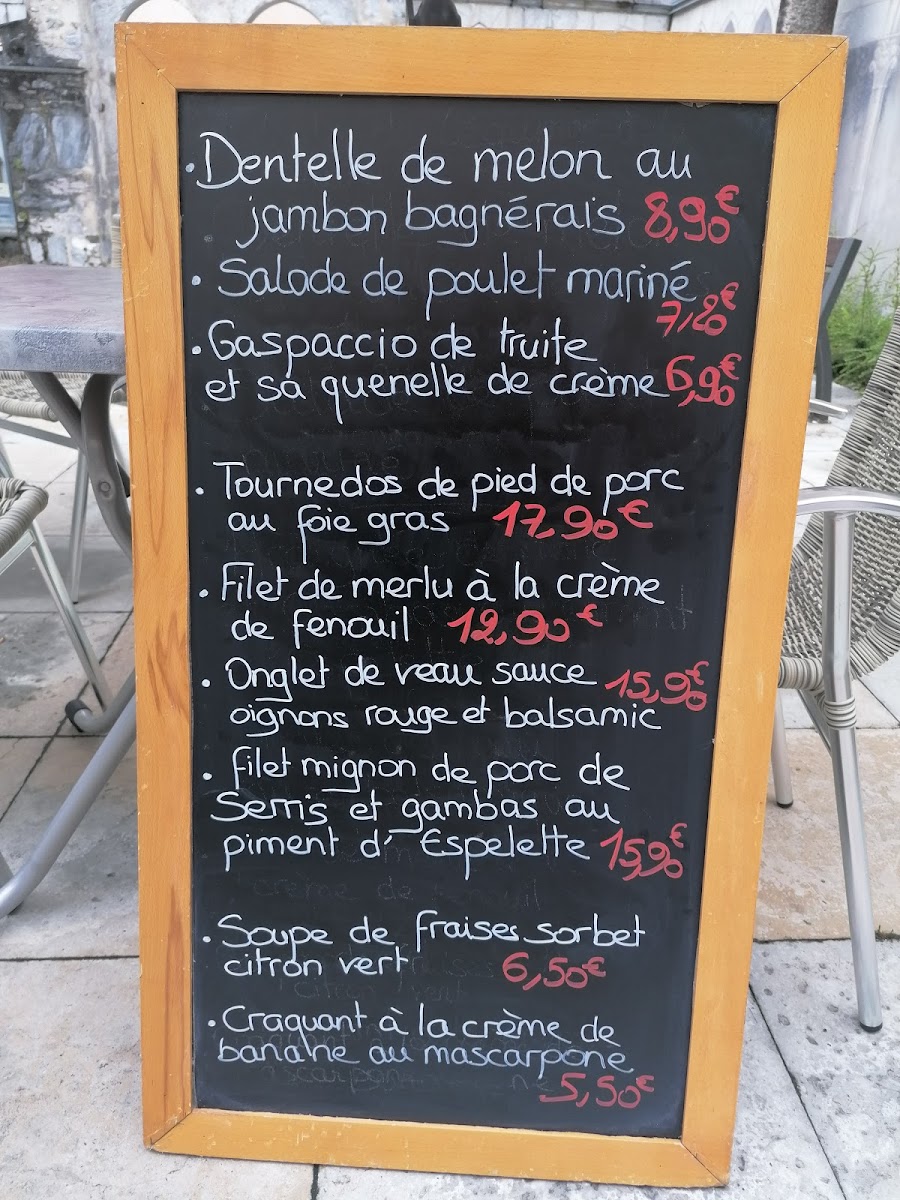 . Dentelle de melon au
jambon bagnérais 8,90€
. Salade de poulet mariné
7,20€
. Gaspaccio de truite
et sa quenelle de crème 6,90€
. Tournedos de pied de porc
au foie gras 17,90€
. Filet de merlu à la crème
de fenouil 12,90€
. Onglet de veau sauce 15,90€
oignons rouge et balsamic
. filet mignon de porc de
Serris et gambas au
piment d'Espelette 15,90€
. Soupe de fraises sorbet
citron vert 6,50€
. Craquant à la crème de
banane au mascarpone
5,50€